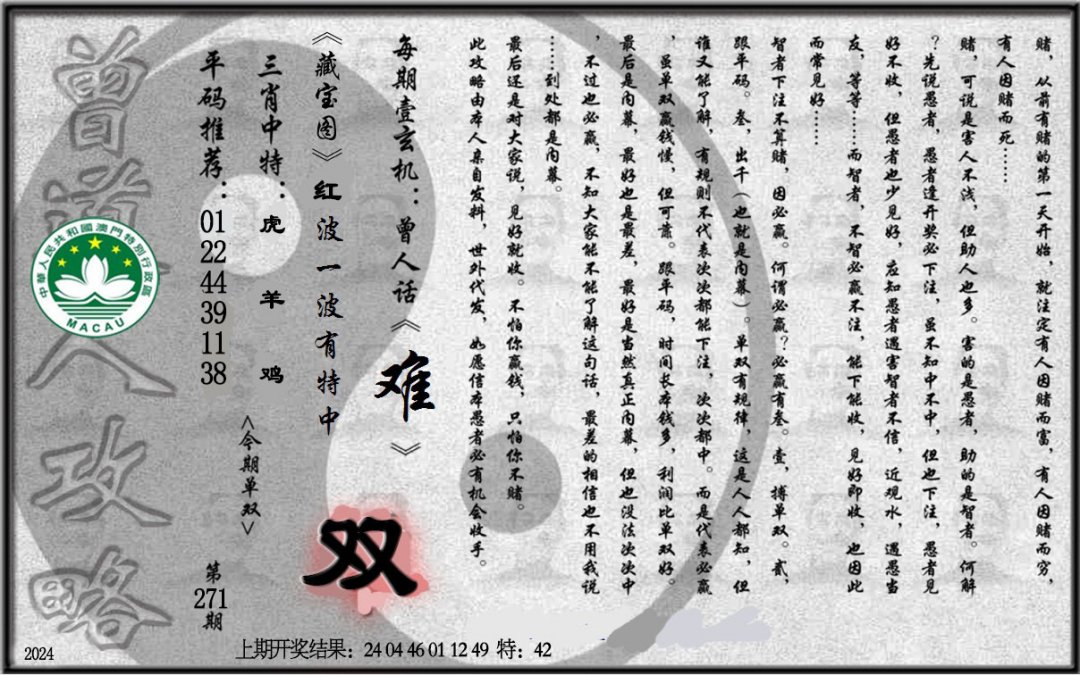 赌，从前有赌的第一天开始，就注定有人因赌而富，有人因赌而穷，
有人因赌而死……
赌，可说是害人不浅，但助人也多。害的是愚者，助的是智者。何解
？先说愚者，愚者逢开奖必下注，虽不知中不中，但也下注，愚者见
好不收，但愚者也少见好，应知愚者遇害智者不信，近观水，遇愚当
友，等等……而智者，不智必赢不注，能下能收，见好即收，也因此
而常见好……
智者下注不算赌，因必赢。何谓必赢？必赢有叁。壹，搏单双。贰，
跟平码。叁，出千（也就是内幕）。单双有规律，这是人人都知，但
谁又能了解，有规则不代表次次都能下注，次次都中。而是代表必赢
，虽单双赢钱慢，但可靠。跟平码，时间长本钱多，利润比单双好。
最后是内幕，最好也是最差，最好是当然真正内幕，但也没法次次中
，不过也必赢，不知大家能不能了解这句话，最差的相信也不用我说
……到处都是内幕。
最后还是对大家说，见好就收。不怕你赢钱，只怕你不赌。
此攻略由本人亲自发料，世外代发，如愿信本愚者必有机会收手。
每期壹玄机：曾人话《难》
《藏宝图》红波一波有特中
双
三肖中特：虎羊鸡
<今期单双>
平码推荐：01 22 44 39 11 38
第271期
曾道人攻略
中華人民共和國澳門特別行政區
MACAU
2024
上期开奖结果：24 04 46 01 12 49 特：42